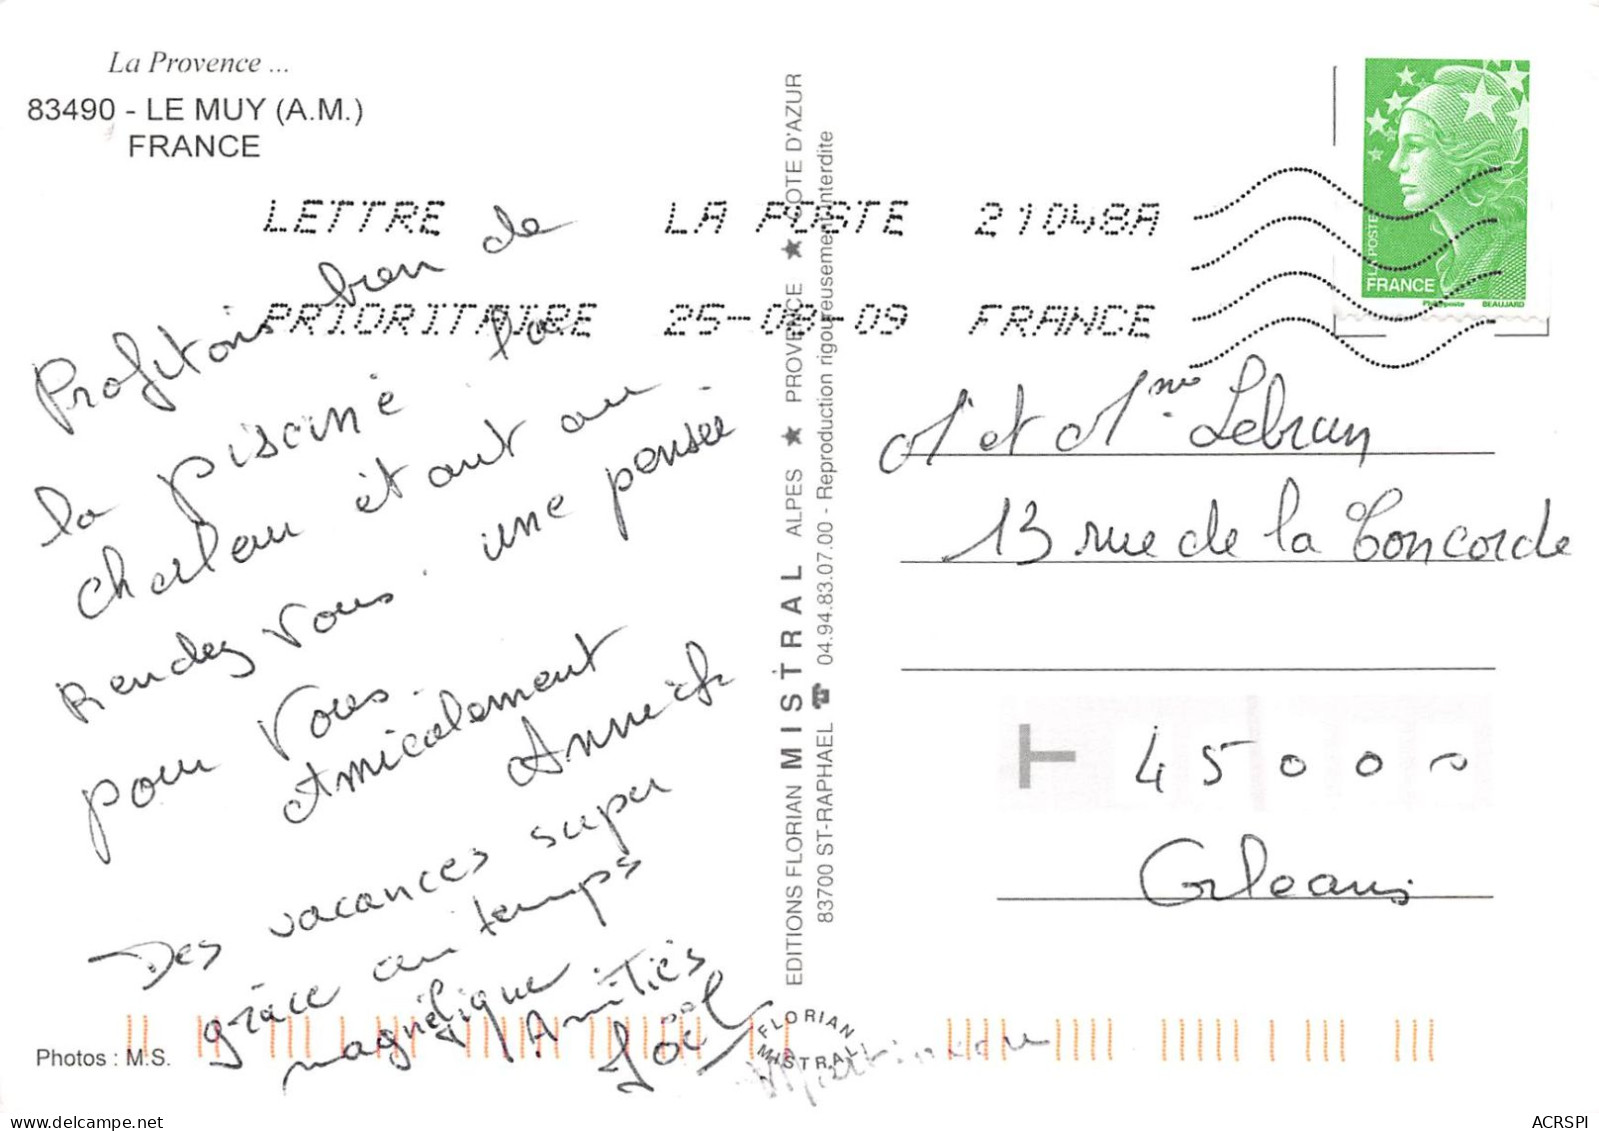 La Provence ...
83490 - LE MUY (A.M.)
FRANCE
LETTRE LA POSTE 21048A
PRIORITAIRE 25-08-09 FRANCE
LA POSTE
FRANCE
Phil@poste BEAUJARD
Profitons bien de
la piscine la
chaleur étant au
Rendez vous. une pensée
pour vous.
Amicalement
Annick
Des vacances super
grâce au temps
magnifique. Amitiés
Joël
EDITIONS FLORIAN MISTRAL ALPES ★ PROVENCE ★ COTE D'AZUR
83700 ST-RAPHAEL ☎ 04.94.83.07.00 - Reproduction rigoureusement interdite
M et Mme Lebrun
13 rue de la Concorde
T 45000
Orleans
Photos : M.S.
FLORIAN
MISTRAL
ACRSPI